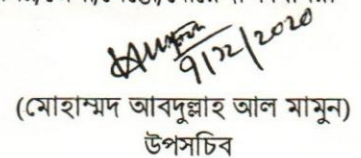 9/12/2020
(মোহাম্মদ আবদুল্লাহ আল মামুন)
উপসচিব